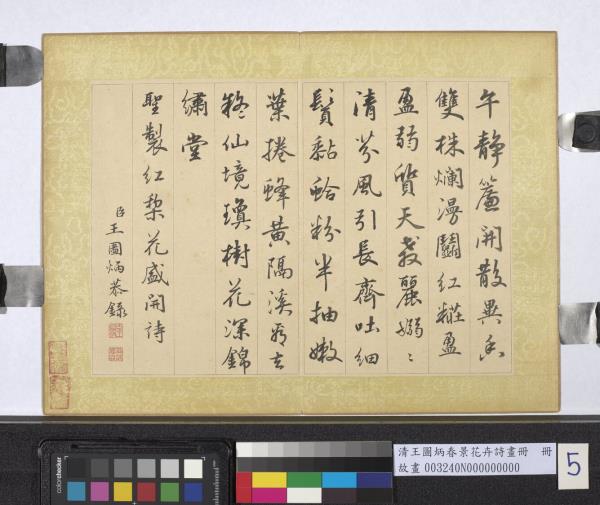 午靜簾開散異香
雙株爛漫鬬紅糚盈
盈弱質天教麗嫋〻
清芬風引長齊吐細
鬚黏蛤粉半抽嫩
葉捲蜂黃隔溪看去
疑仙境瓊樹花深錦
繡堂
聖製紅梨花盛開詩
臣王圖炳恭錄
清王圖炳春景花卉詩畫冊 冊
故畫 003240N000000000
5
colorchecker